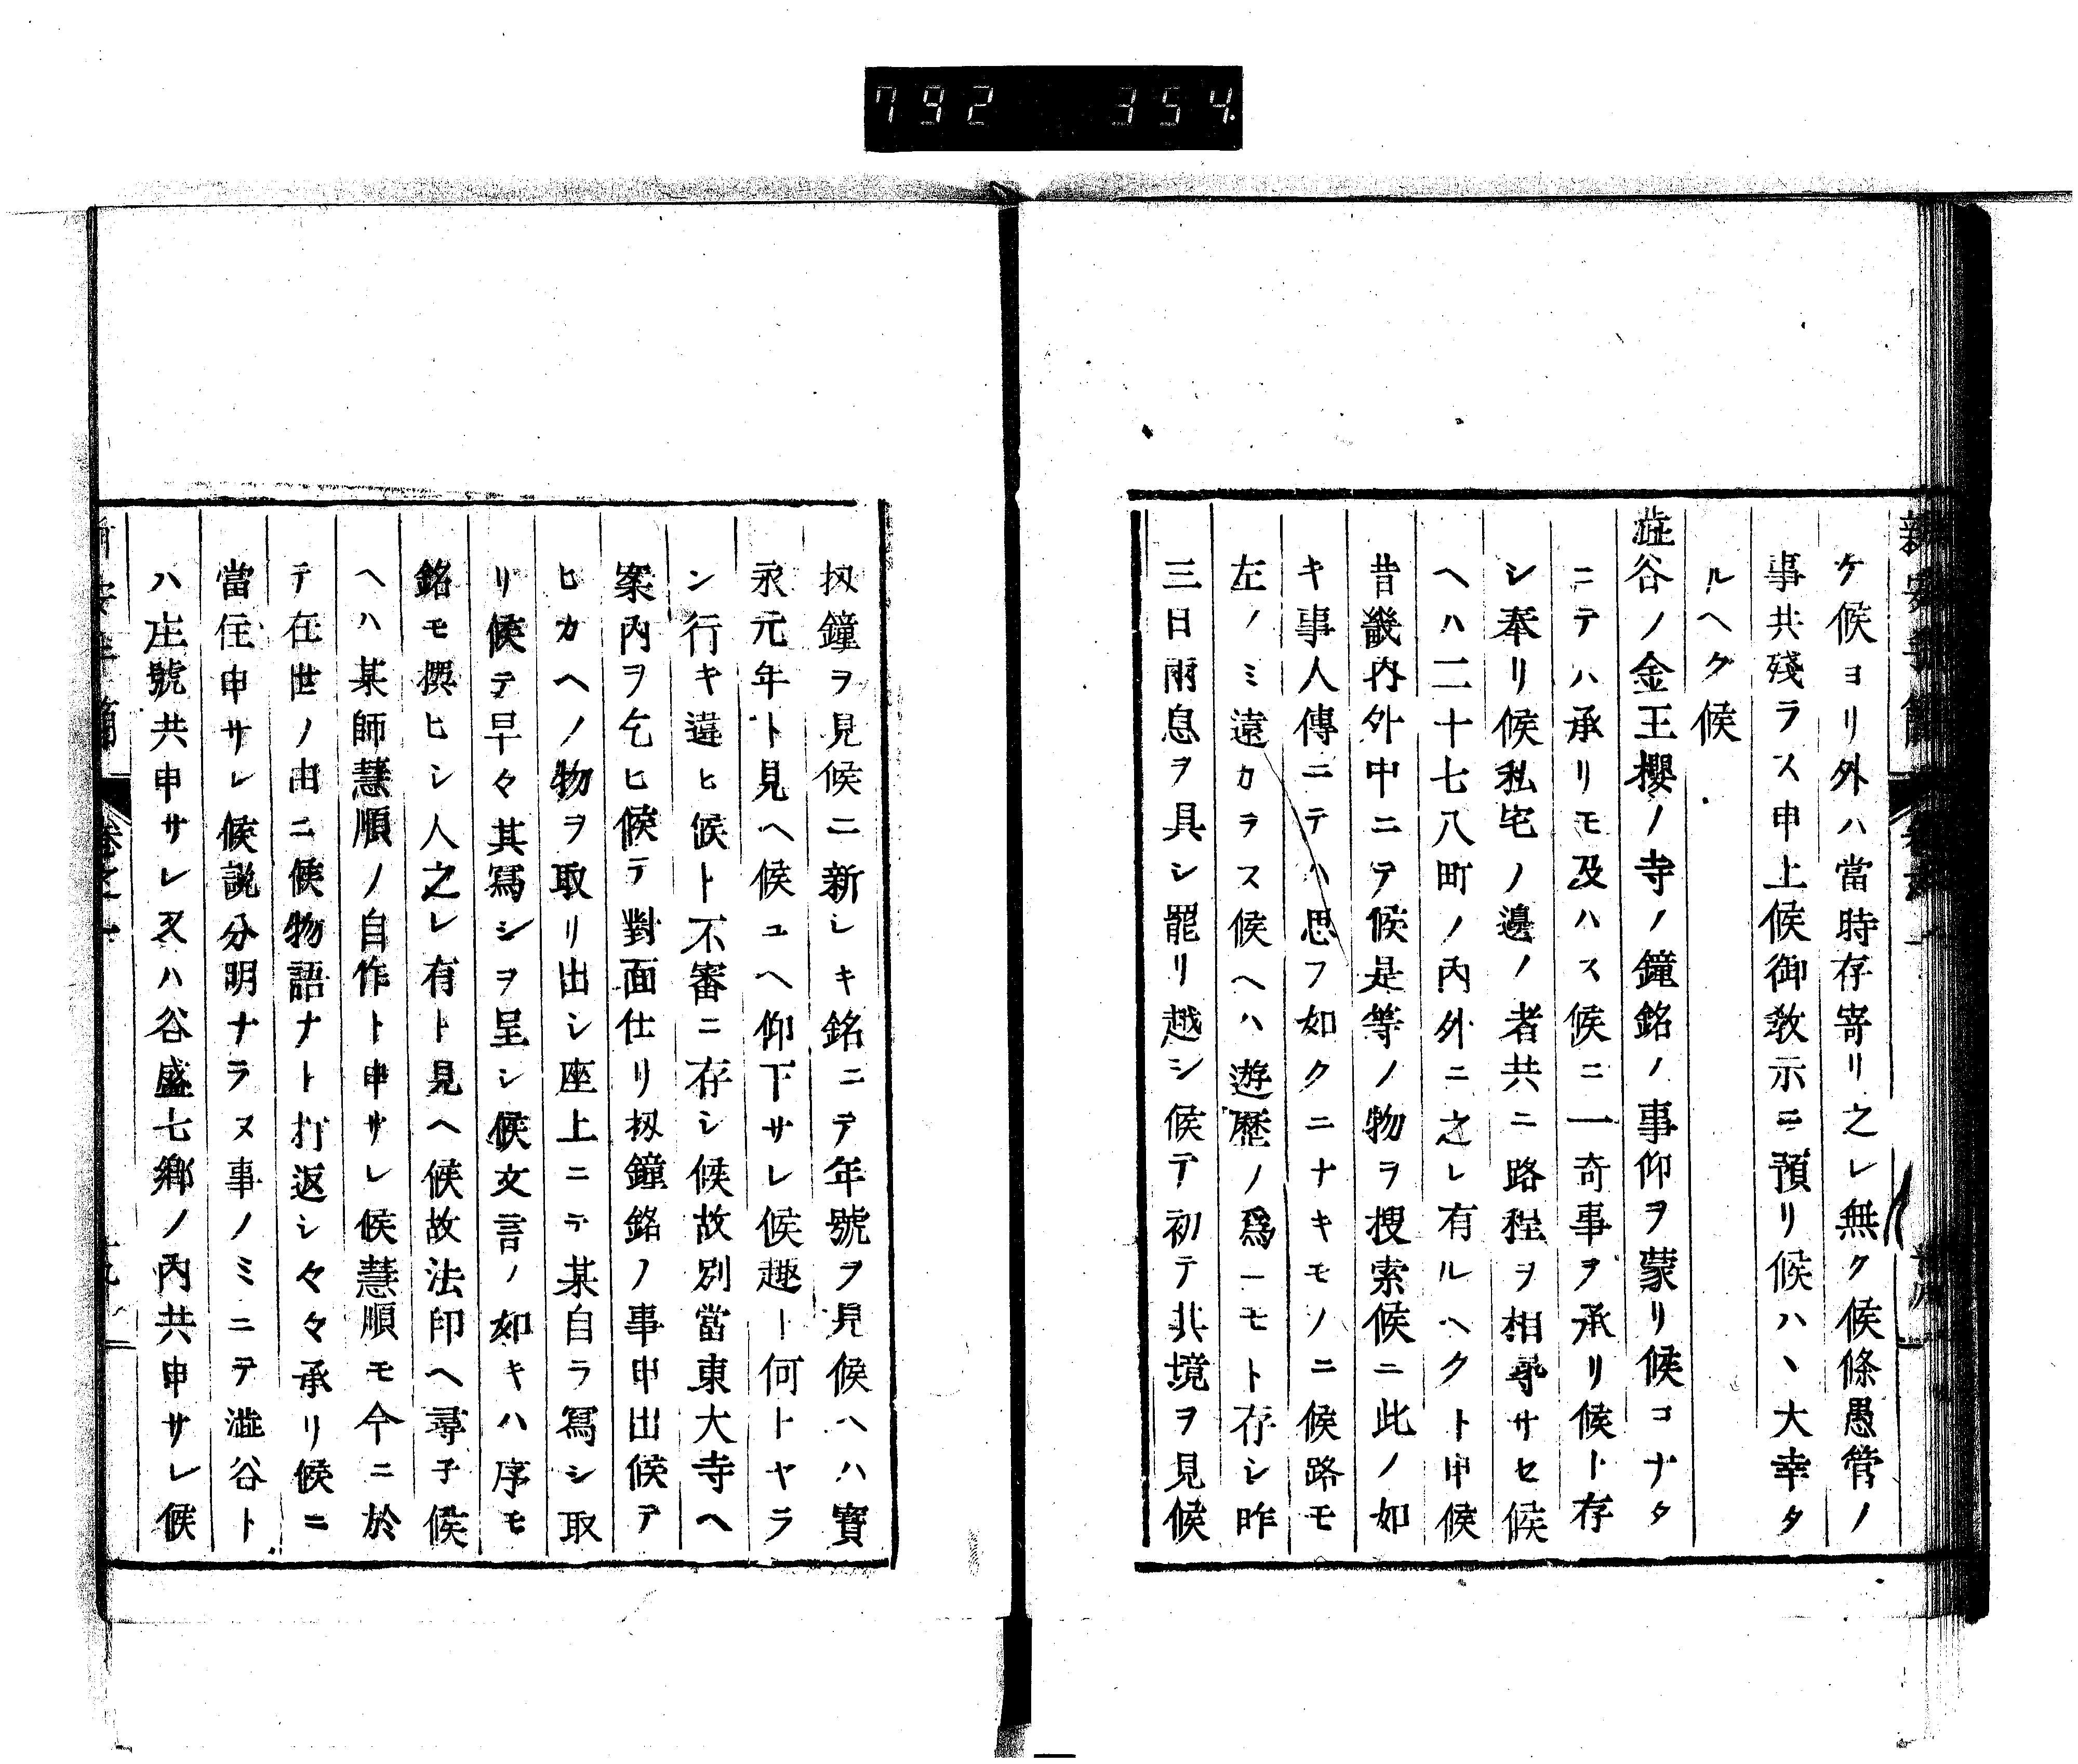 792 354.
ケ候ヨリ外ハ當時存寄リ之レ無ク候條愚管ノ
事共殘ラス申上候御敎示ニ預リ候ハヽ大幸タ
ルヘク候
澁谷ノ金王櫻ノ寺ノ鐘銘ノ事仰ヲ蒙リ候コナタ
ニテハ承リモ及ハス候ニ一奇事ヲ承リ候ト存
シ奉リ候私宅ノ邊ノ者共ニ路程ヲ相尋サセ候
ヘハ二十七八町ノ內外ニ之レ有ルヘクト申候
昔畿內外中ニテ候是等ノ物ヲ搜索候ニ此ノ如
キ事人傳ニテハ思フ如クニナキモノニ候路モ
左ノミ遠カラス候ヘハ遊歷ノ爲ニモト存シ昨
三日雨息ヲ具シ罷リ越シ候テ初テ北境ヲ見候
扨鐘ヲ見候ニ新シキ銘ニテ年號ヲ見候ヘハ寶
永元年ト見ヘ候ユヘ仰下サレ候趣ト何トヤラ
ン行キ違ヒ候ト不審ニ存シ候故別當東大寺ヘ
案內ヲ乞ヒ候テ對面仕リ扨鐘銘ノ事申出候テ
ヒカヘノ物ヲ取リ出シ座上ニテ某自ラ寫シ取
リ候テ早々其寫シヲ呈シ候文言ノ如キハ序モ
銘モ撰ヒシ人之レ有ト見ヘ候故法印ヘ尋子候
ヘハ某師慧順ノ自作ト申サレ候慧順モ今ニ於
テ在世ノ由ニ候物語ナト打返シ々々承リ候ニ
當住申サレ候說分明ナラヌ事ノミニテ澁谷ト
ハ庄號共申サレ又ハ谷盛七鄕ノ內共申サレ候